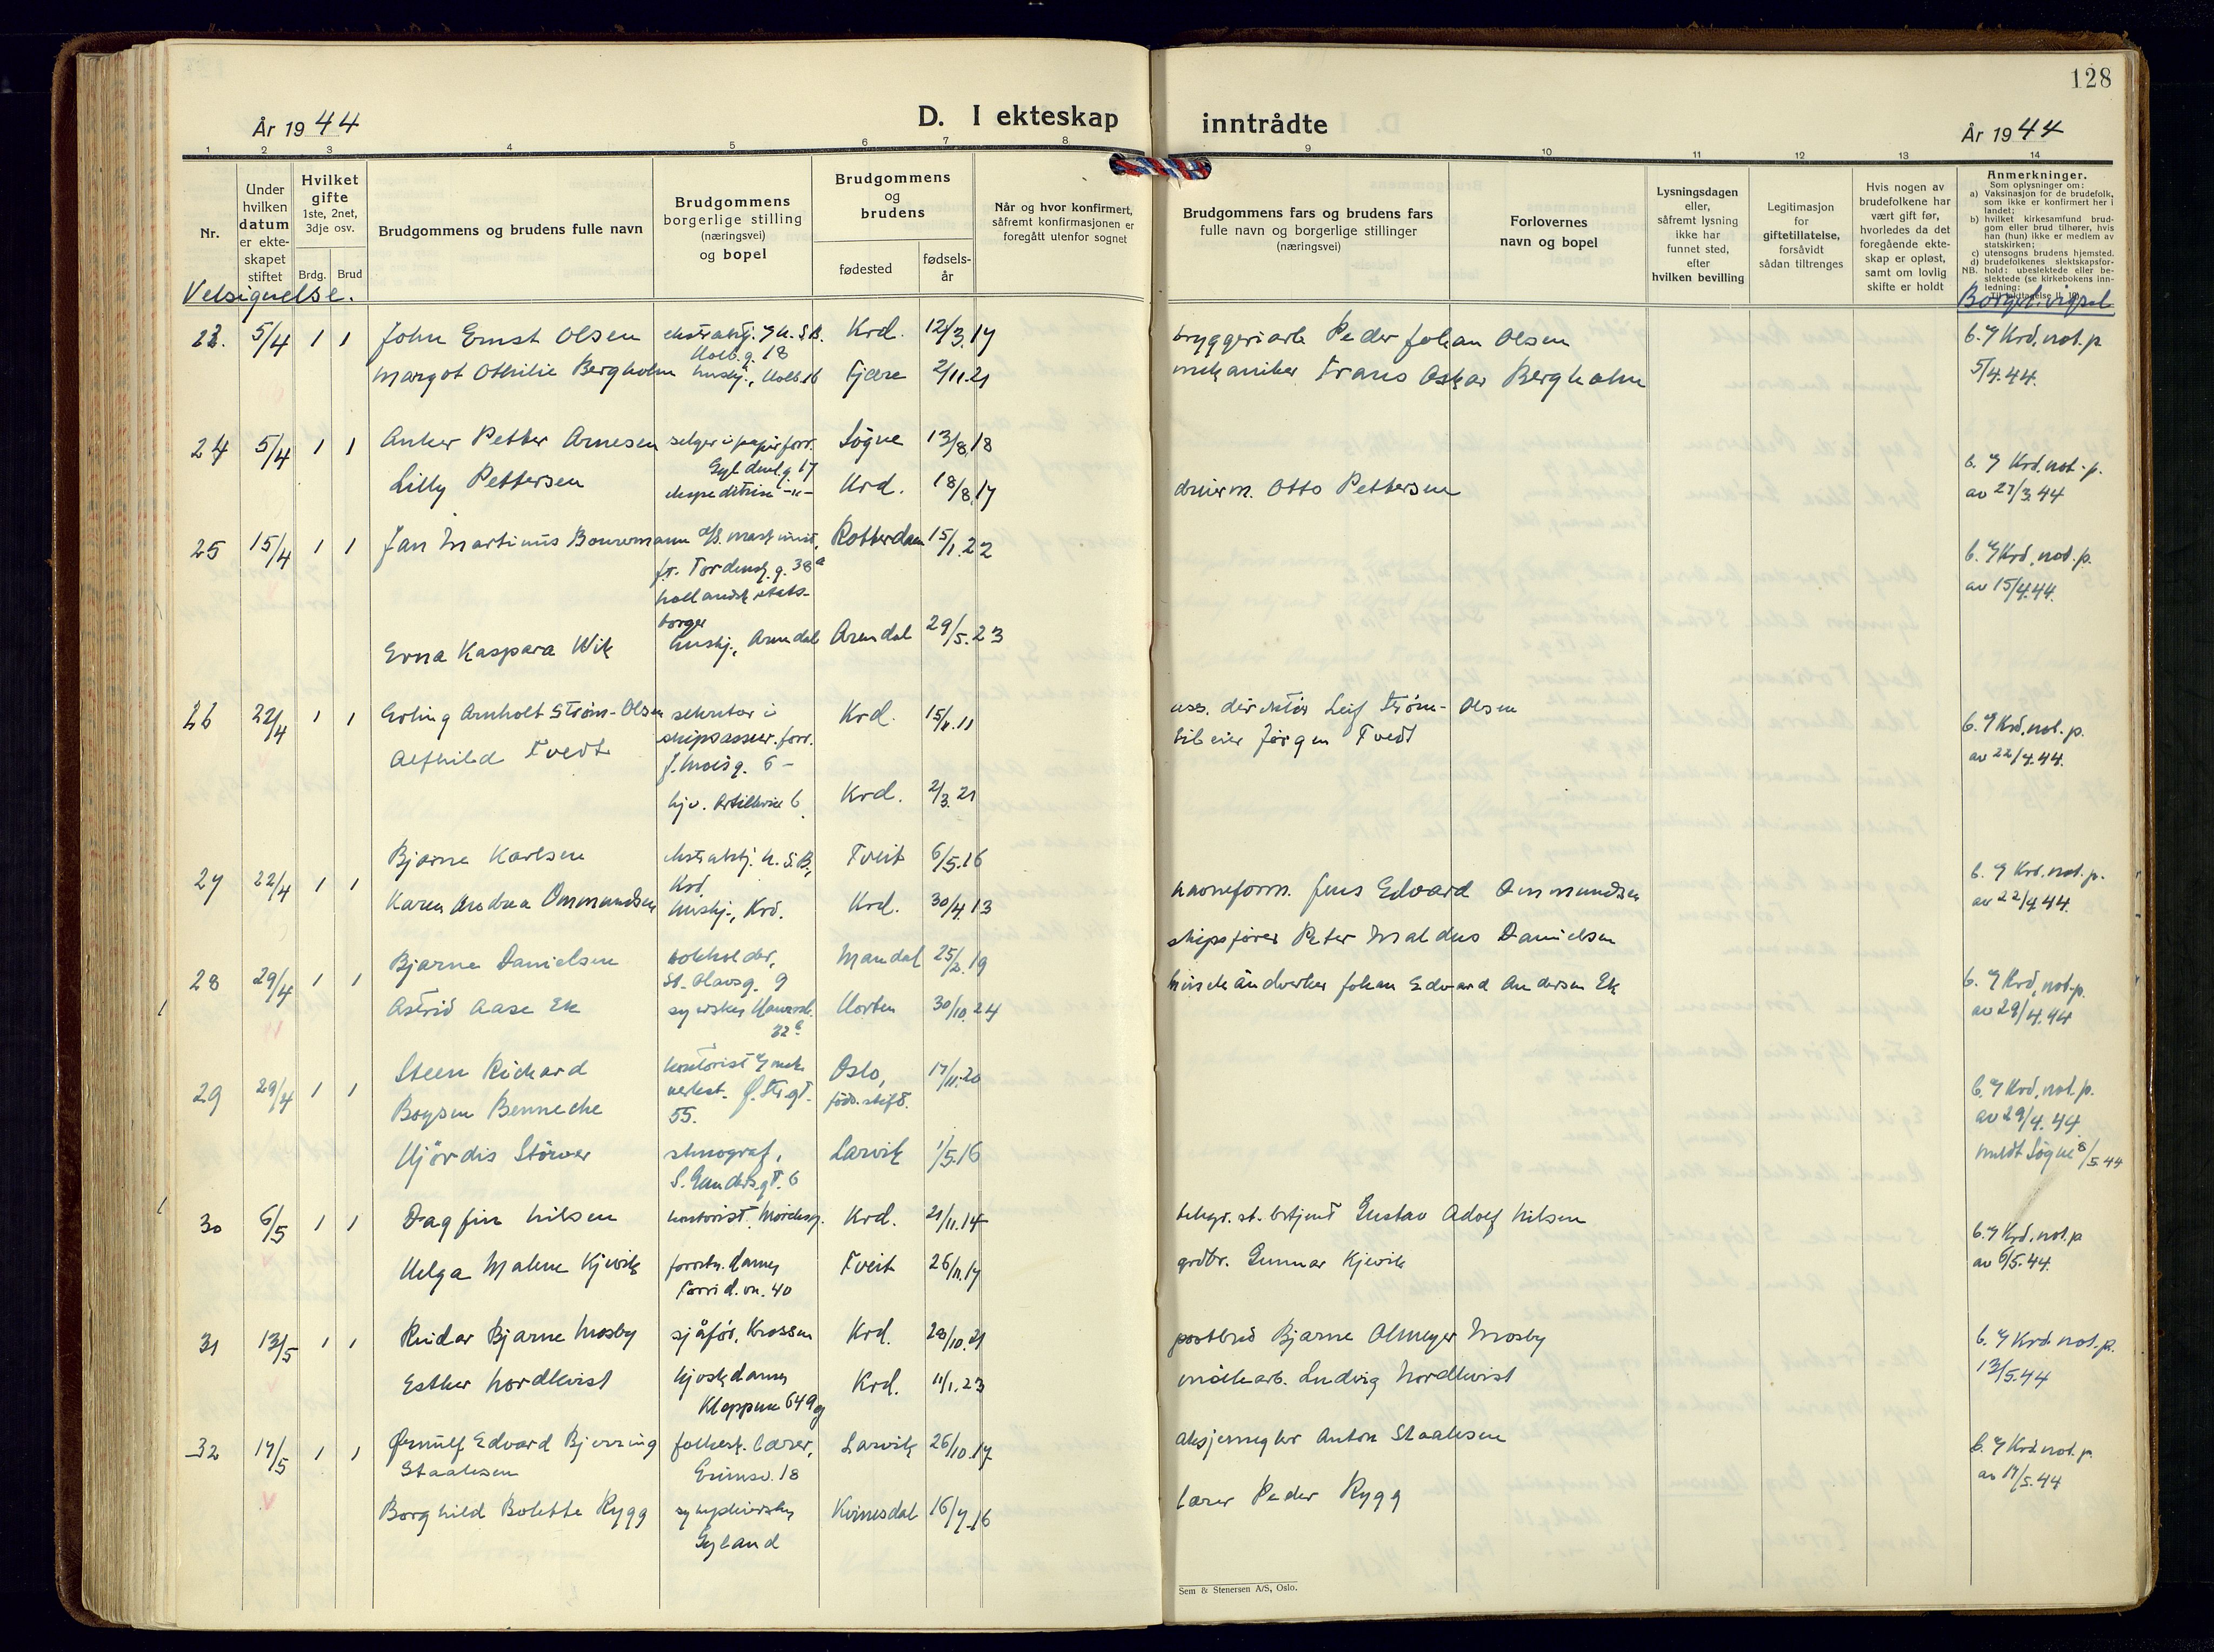 128
År 1944
D. I ekteskap inntrådte
År 1944
1 2 3 4 5 6 7 8 9 10 11 12 13 14
Nr.
Under hvilken datum er ekte-skapet stiftet
Hvilket gifte
1ste, 2net, 3dje osv.
Brdg. Brud
Brudgommens og brudens fulle navn
Brudgommens borgerlige stilling (næringsvei) og bopel
Brudgommens og brudens
fødested
fødsels-år
Når og hvor konfirmert, såfremt konfirmasjonen er foregått utenfor sognet
Brudgommens fars og brudens fars fulle navn og borgerlige stillinger (næringsvei)
Forlovernes navn og bopel
Lysningsdagen eller, såfremt lysning ikke har funnet sted, efter hvilken bevilling
Legitimasjon for giftetillatelse, forsåvidt sådan tiltrenges
Hvis nogen av brudefolkene har vært gift før, hvorledes da det foregående ekte-skap er opløst, samt om lovlig skifte er holdt
Anmerkninger.
Som oplysninger om:
a) Vaksinasjon for de brudefolk, som ikke er konfirmert her i landet;
b) hvilket kirkesamfund brud-gom eller brud tilhører, hvis han (hun) ikke er medlem av statskirken;
c) utensogns brudens hjemsted.
d) brudefolkenes slektskapsfor-hold: ubeslektede eller be-slektede (se kirkebokens inn-ledning:
NB.
Velsignelse.
Borgerl. vigsel
23. 5/4 1 1 John Ernst Olsen Krd. 12/3.17 bryggeriarb Peder Johan Olsen b. Krd. not. p
Holb.g. 18
Margot Othilie Bergholm husbj., Holb. 16 Fjære 2/11.21 mekaniker Frans Oskar Bergholm 5/4.44.
24 5/4 1 1 Anker Petter Arnesen selger i papirforr. Søgne 13/8.18
Gyldenl.g. 17
Lilly Pettersen ekspeditrise -"- Krd. 18/8.17 Otto Pettersen b. Krd. not. p.
av 27/3.44
25 15/4 1 1 Jan Martinus Rotterdam 15/1.22 b. Krd. not. p.
f.t. Tordensk.g. 38a av 15/4.44.
hollandsk stats-
borger
Erna Kaspara Wik husbj., Arendal Arendal 29/5.23
26 22/4 1 1 Erling Arnholt Strøm-Olsen sekretær i Krd. 15/11.11 ass. direktør Leif Strøm-Olsen b. Krd. not. p.
skipsassur. forr.
Alfhild Tvedt 6 - Jørgen Tvedt av 22/4.44.
6 Krd. 2/3.21
27 22/4 1 1 Bjarne Karlsen Tveit 6/5.16 b. Krd. not. p.
Krd.
Karen Andrea Ommundsen husbj., Krd. Krd. 30/4.13 havneform. Jens Edvard Ommundsen av 22/4.44.
28 29/4 1 1 Bjarne Danielsen bokholder, Mandal 25/2.19 skipsfører Peter Danielsen b. Krd. not. p.
St. Olavsg. 9
Astrid Aase Ek syerske, Horten 30/10.24 Johan Edvard Andersen Ek av 29/4.44
29 29/4 1 1 Steen Richard kontorist Oslo, 17/11.20 b. Krd. not. p.
Boysen Benneche 55. føds.stift. av 29/4.44
Hjördis Störner stenograf, Larvik 1/5.16 meldt Søgne 8/5.44
30 6/5 1 1 Dagfin Nilsen kontorist, Krd. 21/11.14 telegr. st. betjent Gustav Adolf Nilsen b. Krd. not. p
Helga Malene Kjevik Torrid.vn. 40 Tveit 26/11.17 grdbr. Gunnar Kjevik av 6/5.44.
31 13/5 1 1 Reidar Bjarne Mosby sjåfør, Krossen Krd. 28/10.21 postbud Bjarne Mosby b. Krd. not. p.
Esther Nordkvist kjoskdame, Krd. 11/1.23 Ludvig Nordkvist 13/5.44
Kleppene 649g
32 17/5 1 1 Ørnulf Edvard Bjerring folkesk. lærer, Larvik 26/10.17 aksjemegler Anton Staalesen b. Krd not. p.
Staalesen Grimsv. 18 av 17/5.44
Borghild Bolette Rygg Kvinesdal 16/7.16 lærer Peder Rygg
Gyland
Sem & Stenersen A/S, Oslo.